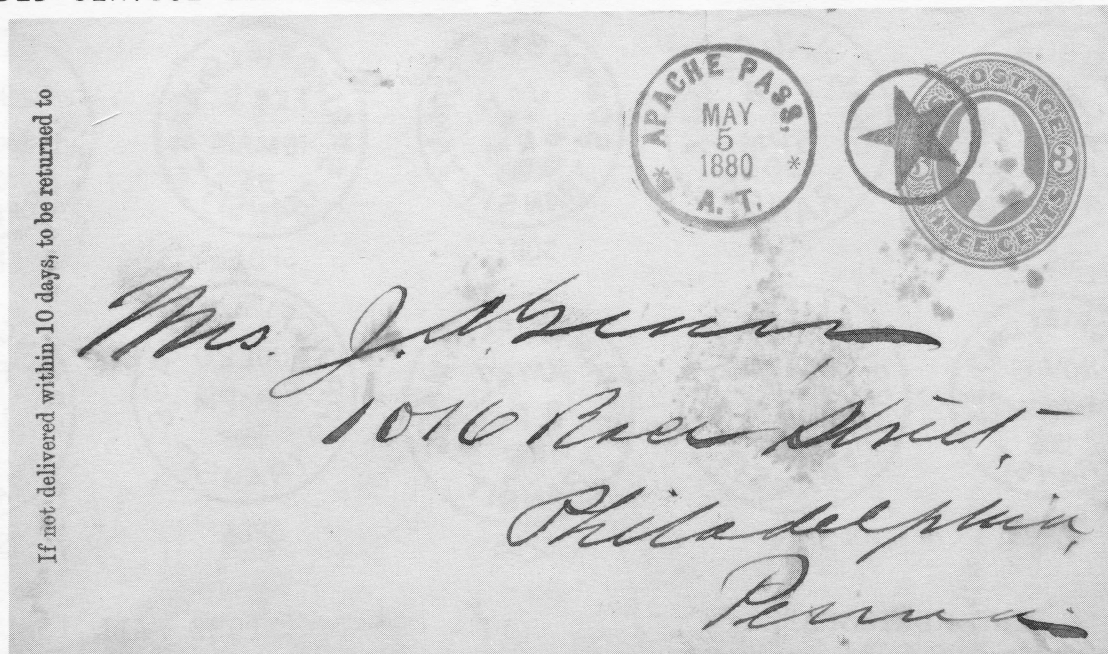 If not delivered within 10 days, to be returned to
* APACHE PASS, *
MAY
5
1880
A. T.
POSTAGE
3
THREE CENTS
Mrs. J. A.
1016 Race Street,
Philadelphia,
Penna